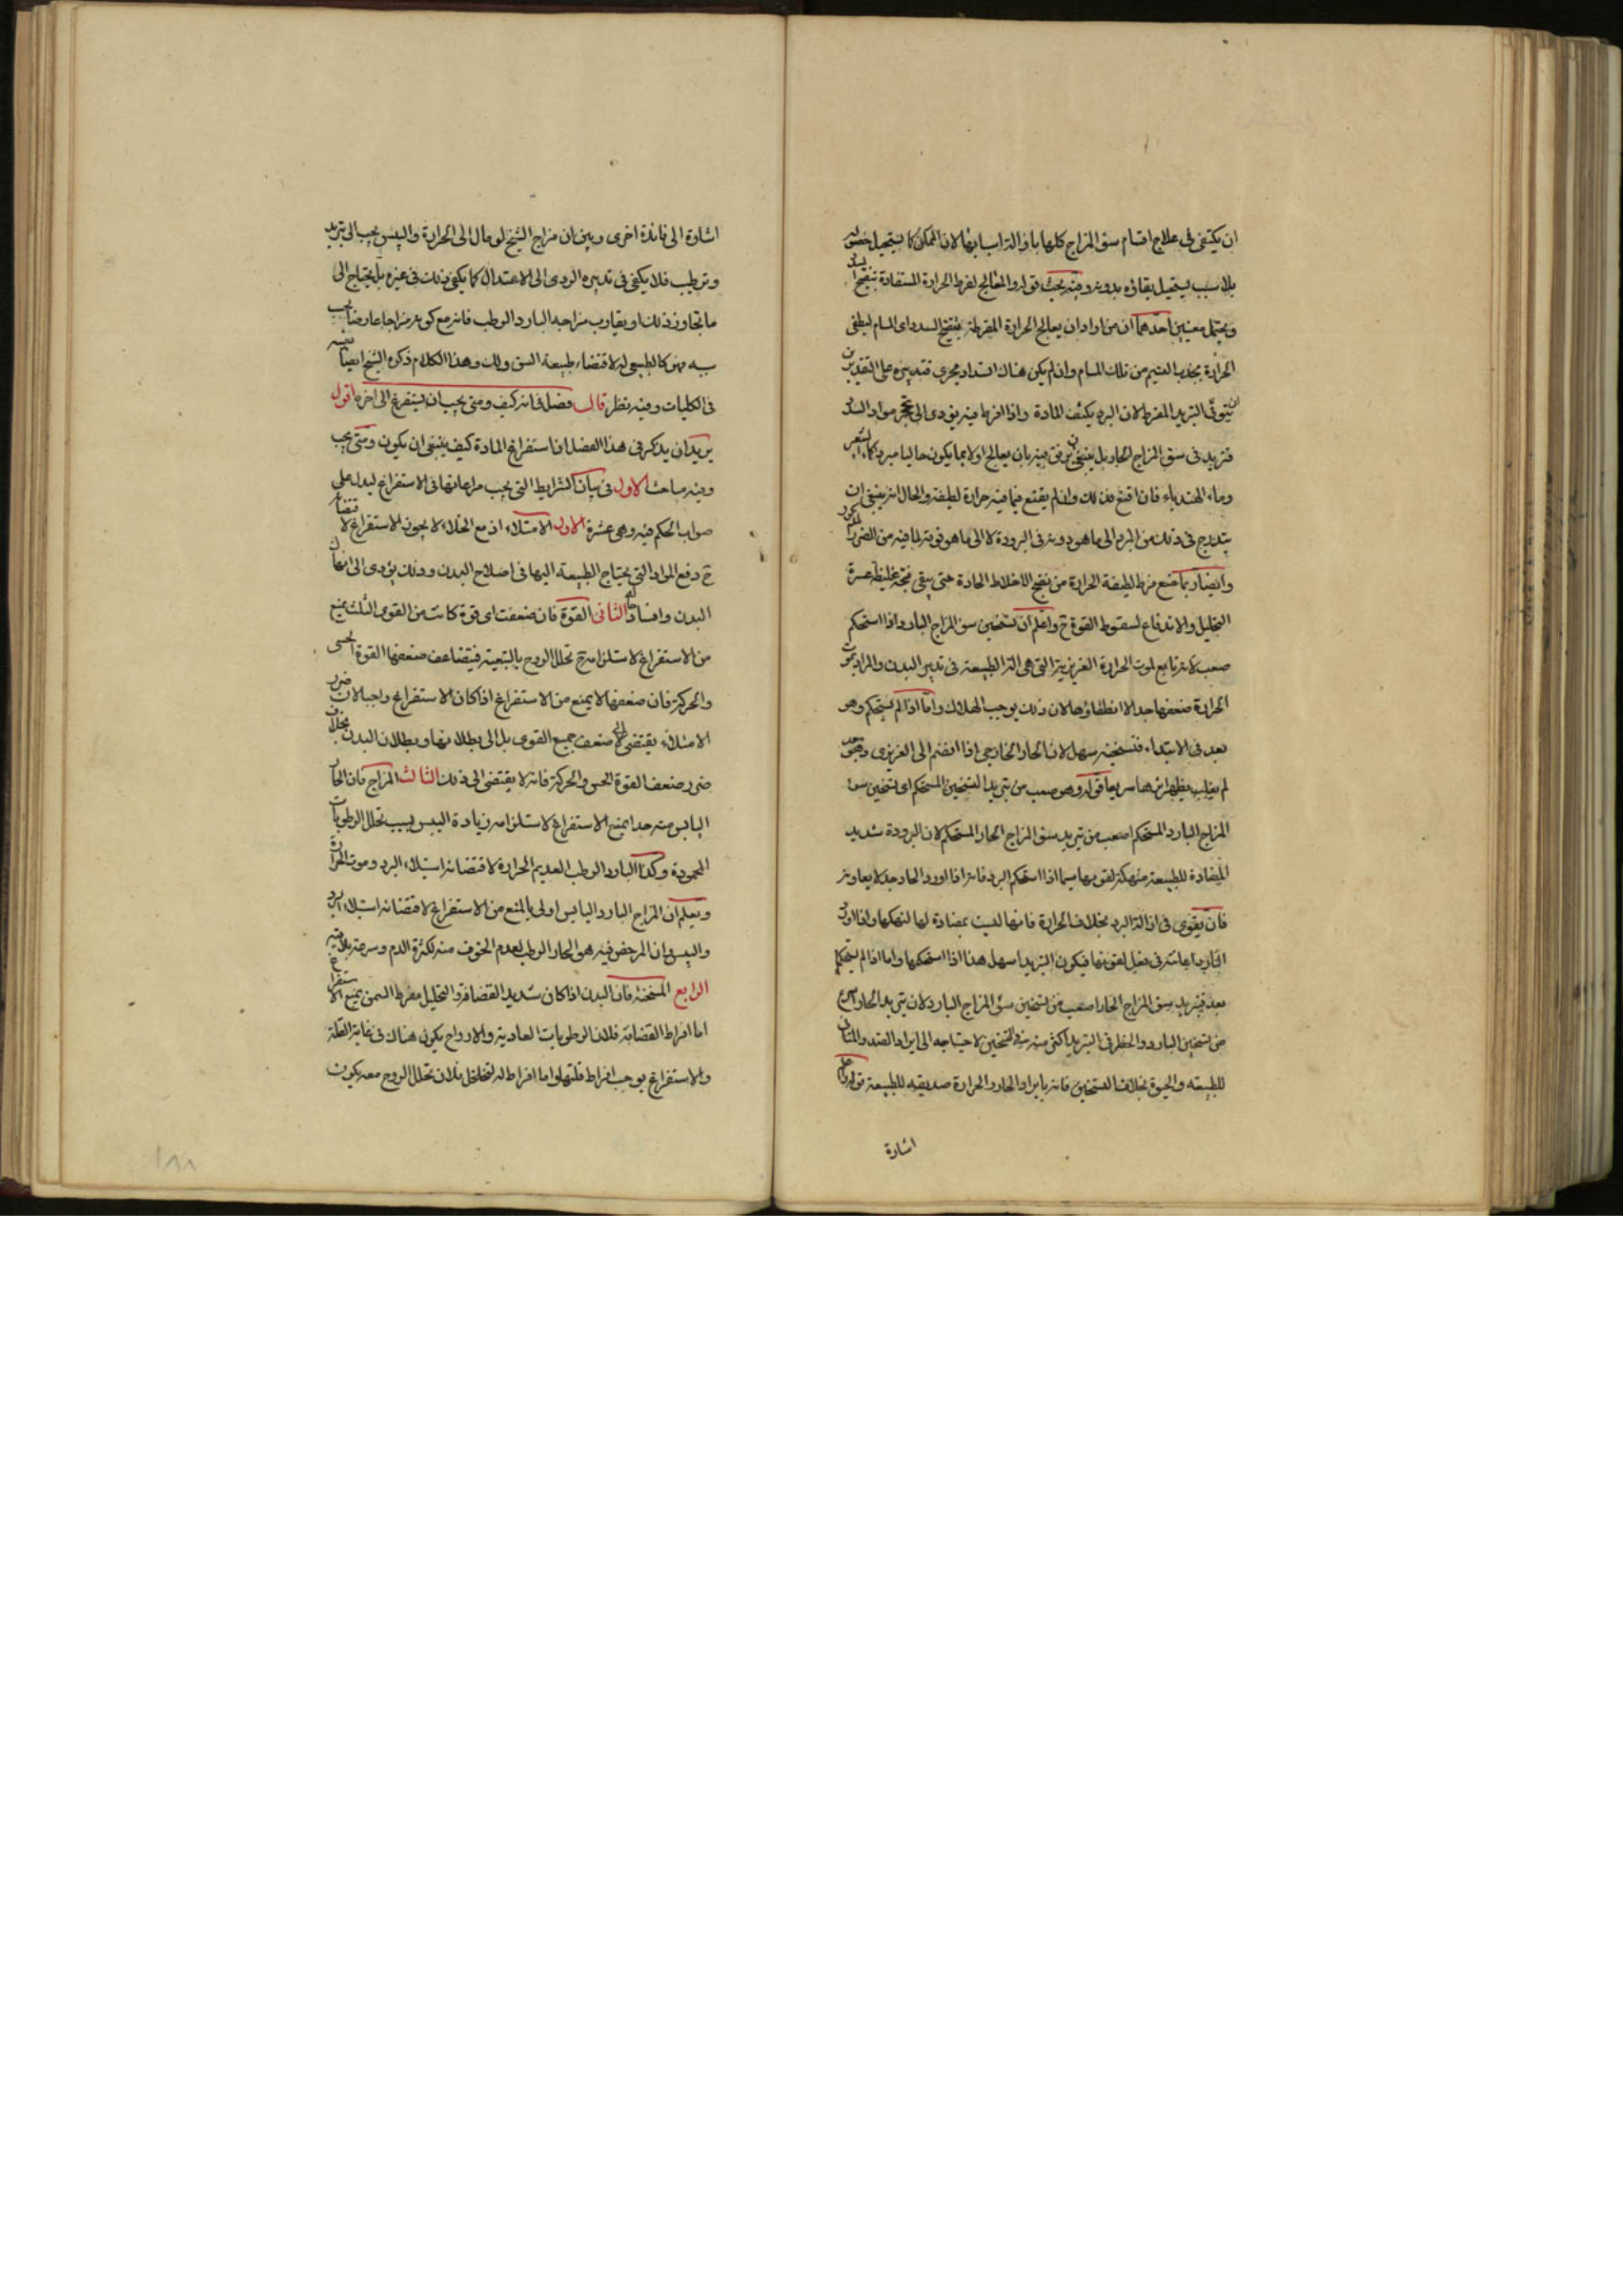 ان يكتفى فى علاج اقسام سوء المزاج كلها بازالة اسبابها لان الممكن كما يستحيل حصوله
بلا سبب يستحيل بقاؤه بدونه وفيه بحث قوله والمعالج لفرط الحرارة المستفادة بتفتيح السدد
ويحتمل معنيين احدهما ان من اراد ان يعالج الحرارة المفرطة بتفتيح السدد اى المسام ليطفى
الحرارة بجذب النسيم من تلك المسام وان لم يكن هناك انسداد مجرى فتدبيره على التقديرين
ان يتوقى التبريد المفرط لان البرد يكثف المادة واذا افرط فيه يؤدى الى تحجر مواد السدد
فتزيد فى سوء المزاج الحار بل ينبغى ان يرفق فيه بان يعالج اولا بما يكون جاليا مبردا كماء الشعير
وماء الهندباء فان اقنع فذلك وان لم يقنع فبما فيه حرارة لطيفة والحال انه ينبغى ان
يتدرج فى ذلك من المبرد الى ما هو دونه فى البرودة لا الى ما هو فوقه لما فيه من الضرر المذكور
وايضا ربما منع فرط لطيفة الحرارة من نضج الاخلاط الحادة حتى يبقى فجة غليظة عسرة
التحليل والاندفاع لسقوط القوة ح واعلم ان تسخين سوء المزاج البارد اذا استحكم
صعب لانه تابع لموت الحرارة الغريزية التى هى الة الطبيعة فى تدبير البدن والمراد بموت
الحرارة ضعفها جدا لا انطفاؤها لان ذلك يوجب الهلاك واما اذا لم يستحكم وهو
بعد فى الابتداء فتسخينه سهل لان الحار الخارجى اذا انضم الى الغريزى وهو بعد
لم يغلب يظهر اثرهما سريعا قوله وهو صعب من تبريد التسخين المستحكم اى تسخين سوء
المزاج البارد المستحكم اصعب من تبريد سوء المزاج الحار المستحكم لان البرودة شديد
المضادة للطبيعة منهكة لقوتها سيما اذا استحكم البرد فانه اذا اورد الحار جدا يعاونه
فان يقوى فى ازالة البرد بخلاف الحرارة فانها ليست بمضادة لها لتنهكها واذا اورد
البارد اعانته فى فعل لقوتها فيكون التبريد اسهل هذا اذا استحكما واما اذا لم يستحكما
بعد فتبريد سوء المزاج الحار اصعب من تسخين سوء المزاج البارد لان تبريد الحار اسرع
من تسخين البارد والخطر فى التبريد اكثر منه فى التسخين لاحتياجه الى ايراد الضد والمنافى
للطبيعة والحيوة بخلاف التسخين فانه بايراد الحار والحرارة صديقة للطبيعة قوله واعلم
اشارة
اشارة الى فائدة اخرى وبين ان مزاج الشيخ لو مال الى الحرارة واليبس يجب الى تبريد
وترطيب فلا يكفى فى تدبيره الرد الى الاعتدال كما يكفى ذلك فى غيره بل يحتاج الى
ما تجاوز ذلك او يقارب مزاجه البارد الرطب فانه مع كونه مزاجا عارضا بحسب
سنه فهو كالطبيعى له لاقتضاء طبيعة السن ذلك وهذا الكلام ذكره الشيخ ايضا بعينه
فى الكليات وفيه نظر قال فصل فى انه كيف ومتى يجب ان يستفرغ الى اخره اقول
يريد ان يذكر فى هذا الفصل ان استفراغ المادة كيف ينبغى ان يكون ومتى يجب
وفيه مباحث الاول فى بيان الشرايط التى يجب مراعاتها فى الاستفراغ ليدل على
صواب الحكم فيه وهى عشرة الاول الامتلاء اذ مع الخلاء لا يجوز الاستفراغ لاقتضائه
ح دفع المواد التى يحتاج الطبيعة اليها فى اصلاح البدن وذلك يؤدى الى انهاك
البدن وافساده الثانى القوة فان ضعفت اى قوة كانت من القوى الثلث يمنع
من الاستفراغ لاستلزامه ح تحلل الروح بالتبعية فيتضاعف ضعفها القوة الحسى
والحركة فان ضعفها لا يمنع من الاستفراغ اذا كان الاستفراغ واجبا لان ضرر
الامتلاء يقتضى الى ضعف جميع القوى بل الى بطلانها وبطلان البدن بخلاف
ضرر ضعف القوة الحس والحركة فانه لا يقتضى الى ذلك الثالث المزاج فان الحار
اليابس منه جدا يمنع الاستفراغ لاستلزامه زيادة اليبس بسبب تحلل الرطوبات
المحمودة وكذا البارد الرطب العديم الحرارة لاقتضائه استيلاء البرد وموت الحرارة
ويعلم ان المزاج البارد اليابس اولى بالمنع من الاستفراغ لاقتضائه استيلاء البرد
واليبس وان المرخص فيه هو الحار الرطب لعدم الخوف منه لكثرة الدم وسرعة تلافيه
الرابع السحنة فان البدن اذا كان شديد القضافة والتحليل مفرط السمن يمنع الاستفراغ
اما افراط القضافة فلان الرطوبات العادية والارواح يكون هناك فى غاية القلة
والاستفراغ يوجب افراط قلتها واما افراط له لتخلخل فلان تحلل الروح معه يكون
١٨٨